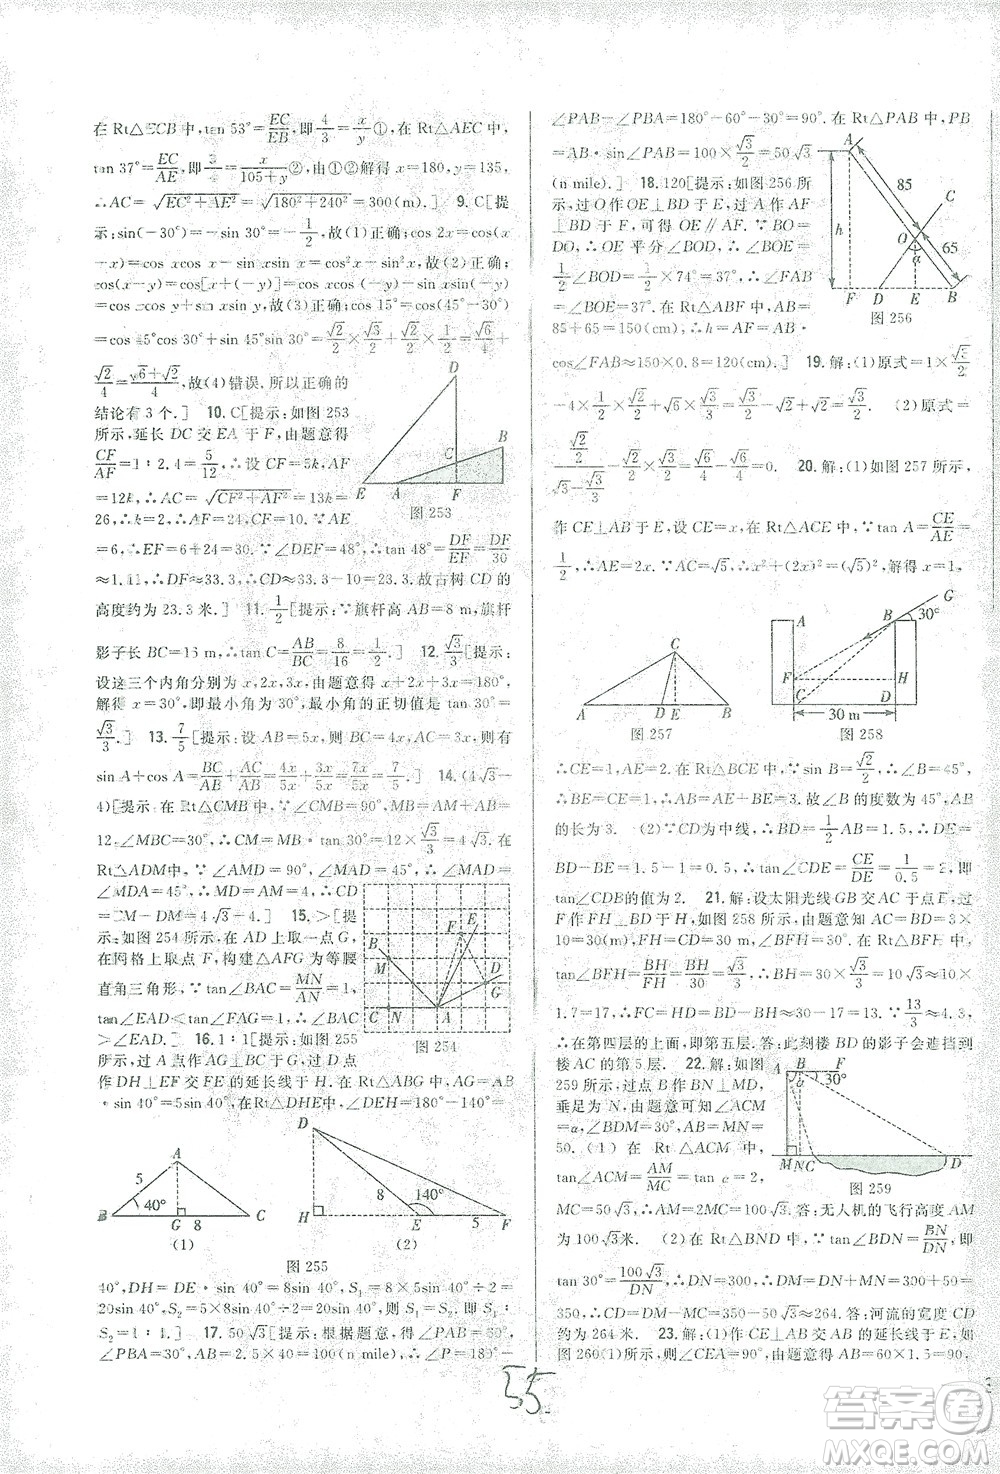 在 Rt△ECB 中,tan 53°=EC/EB,即 4/3=x/y①,在 Rt△AEC 中,
tan 37°=EC/AE,即 3/4=x/(105+y)②,由①②解得 x=180,y=135,
∴AC=√(EC²+AE²)=√(180²+240²)=300(m).] 9. C[提
示:sin(-30°)=-sin 30°=-1/2,故(1)正确;cos 2x=cos(x
+x)=cos xcos x-sin xsin x=cos²x-sin²x,故(2)正确;
cos(x-y)=cos[x+(-y)]=cos xcos(-y)-sin xsin(-y)=
cos xcos y+sin xsin y,故(3)正确;cos 15°=cos(45°-30°)
=cos 45°cos 30°+sin 45°sin 30°=√2/2×√3/2+√2/2×1/2=√6/4+
√2/4=(√6+√2)/4,故(4)错误.所以正确的
结论有 3 个.] 10. C[提示:如图 253
所示,延长 DC 交 EA 于 F,由题意得
CF/AF=1∶2.4=5/12,∴设 CF=5k,AF
=12k,∴AC=√(CF²+AF²)=13k=
26,∴k=2,∴AF=24,CF=10.∵AE
=6,∴EF=6+24=30.∵∠DEF=48°,∴tan 48°=DF/EF=DF/30
=1.11,∴DF=33.3,∴CD=33.3-10=23.3.故古树 CD 的
高度约为 23.3 米.] 11. 1/2[提示:∵旗杆高 AB=8 m,旗杆
影子长 BC=16 m,∴tan C=AB/BC=8/16=1/2.] 12. √3/3[提示:
设这三个内角分别为 x,2x,3x,由题意得 x+2x+3x=180°,
解得 x=30°,即最小角为 30°,∴最小角的正切值是 tan 30°=
√3/3.] 13. 7/5[提示:设 AB=5x,BC=4x,AC=3x,则有
sin A+cos A=BC/AB+AC/AB=4x/5x+3x/5x=7x/5x=7/5.] 14. (4√3-
4)[提示:在 Rt△CMB 中,∵∠CMB=90°,MB=AM+AB=
12,∠MBC=30°,∴CM=MB·tan 30°=12×√3/3=4√3.在
Rt△ADM 中,∵∠AMD=90°,∠MAD=45°,∴∠MAD=
∠MDA=45°,∴MD=AM=4,∴CD
=CM-DM=4√3-4.] 15. >[提
示:如图 254 所示,在 AD 上取一点 G,
在网格上取点 F,构建△AFG 为等腰
直角三角形,∵tan∠BAC=MN/AN=1,
tan∠EAD<tan∠FAG=1,∴∠BAC
>∠EAD.] 16. 1∶1[提示:如图 255
所示,过 A 点作AG⊥BC于G,过D点
作 DH⊥EF 交 FE 的延长线于 H.在 Rt△ABG 中,AG=AB
·sin 40°=5sin 40°,在Rt△DHE中,∠DEH=180°-140°=
40°,DH=DE·sin 40°=8sin 40°,S₁=8×5sin 40°÷2=
20sin 40°,S₂=5×8sin 40°÷2=20sin 40°,则 S₁=S₂,则S₁∶
S₂=1∶1.] 17. 50√3[提示:根据题意,得∠PAB=60°,
∠PBA=30°,AB=2×50=100(n mile),∴∠P=180°-
∠PAB-∠PBA=180°-60°-30°=90°.在 Rt△PAB 中,PB
=AB·sin∠PAB=100×√3/2=50√3
(n mile).] 18. 120[提示:如图 256 所
示,过 O作 OE⊥BD于 E,过 A作 AF
⊥BD于 F,可得 OE∥AF.∵BO=
DO,∴OE 平分∠BOD,∴∠BOE=
1/2∠BOD=1/2×74°=37°,∴∠FAB
=∠BOE=37°.在 Rt△ABF 中,AB=
85+65=150(cm),∴h=AF=AB·
cos∠FAB≈150×0.8=120(cm).] 19. 解:(1)原式=1×√3/2
-4×1/2×√2/2+√2=√3/2-√2+√2=√3/2. (2)原式=√2/2×
(√2/2)/(√3-√3/2)-√3/2×√2/2=√6/4-√6/4=0. 20. 解:(1)如图 257 所示,
作 CE⊥AB 于 E,设 CE=x,在 Rt△ACE 中,∵tan A=CE/AE=
1/2,∴AE=2x,∴AC=√(x²+(2x)²)=√5x,∴√5x=√5,解得 x=1,
∴CE=1,AE=2.在 Rt△BCE 中,∵sin B=√2/2,∴∠B=45°,
∴△BCE为等腰直角三角形,∴BE=CE=1,∴AB=AE+
BE=3.故∠B 的度数为 45°,AB
的长为 3. (2)∵CD为中线,∴BD=1/2AB=1.5,∴DE=
BD-BE=1.5-1=0.5,∴tan∠CDE=CE/DE=1/0.5=2.即
tan∠CDB的值为 2. 21. 解:设太阳光线 GB 交 AC 于点F,过
F 作 FH⊥BD 于 H,如图 258 所示,由题意知,AC=BD=3×
10=30(m),FH=CD=30 m,∠BFH=30°,在 Rt△BFH 中,
tan∠BFH=BH/FH=BH/30=√3/3,∴BH=30×√3/3=10√3≈10×
1.7=17,∴FC=HD=BD-BH≈30-17=13.∵13/3≈4.3,
∴在第四层的上面,即第五层.答:此刻楼 BD 的影子会遮挡到
楼 AC 的第 5 层. 22. 解:如图
259 所示,过点 B 作 BN⊥MD,
垂足为 N,由题意可知,∠ACM
=α,∠BDM=30°,AB=MN=
50. (1) 在 Rt△ACM 中,
tan∠ACM=AM/MC=tan α=2,
MC=50√3,∴AM=2MC=100√3.答:无人机的飞行高度 AM
为 100√3 米. (2)在 Rt△BND 中,∵tan∠BDN=BN/DN,即
tan 30°=100√3/DN,∴DN=300,∴DM=DN+MN=300+50=
350,∴CD=DM-MC=350-50√3≈264.答:河流的宽度 CD
约为 264 米. 23. 解:(1)作 CE⊥BA 的延长线于 E,
图 260(1)所示,则∠CEA=90°,由题意得 AB=60×1.5=90
D
C
B
E
A
F
图 253
F
E
B
M
D
G
C
N
A
图 254
A
5
40°
B
G
8
C
(1)
D
8
140°
H
E
5
F
(2)
图 255
A
85
C
h
O
65
α
F
D
E
B
图 256
C
A
D
E
B
图 257
A
B
G
30°
F
H
C
D
30 m
图 258
A
B
F
30°
M
N
C
D
图 259
55
答案卷
MXQE.COM